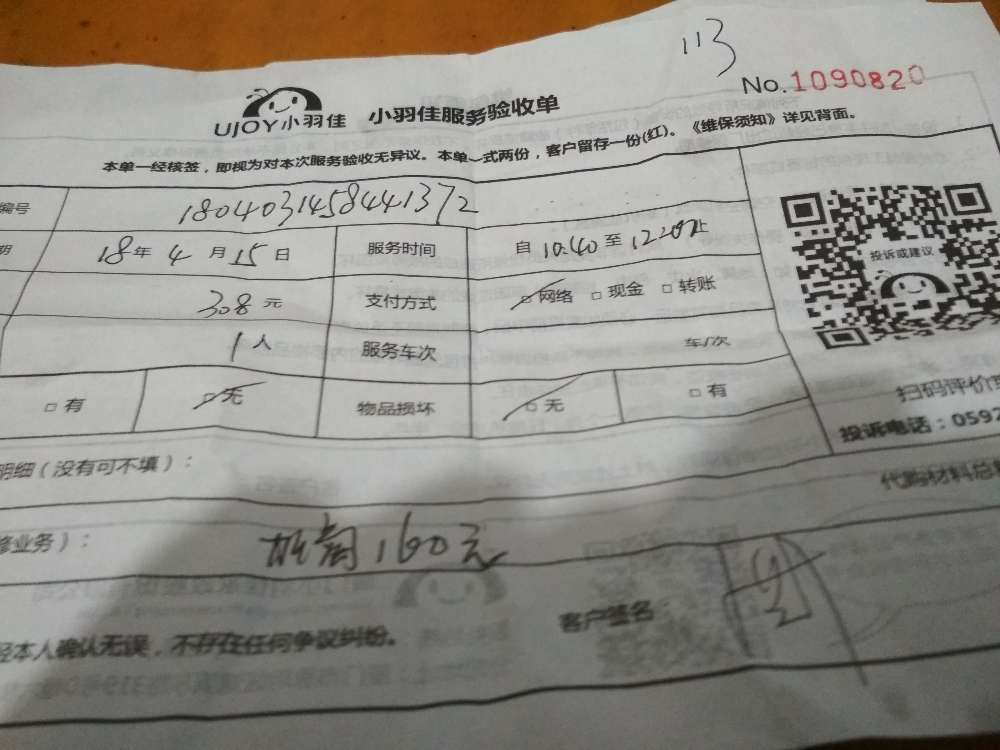 113
No.1090820
UJOY小羽佳 小羽佳服务验收单
本单一经核签，即视为对本次服务验收无异议。本单一式两份，客户留存一份(红)。《维保须知》详见背面。
编号 1804031458441372
期 18年 4月 15日 服务时间 自 10:40 至 止
投诉或建议
308元 支付方式 □网络 □现金 □转账
1人 服务车次 车/次
□有 □无 物品损坏 □无 □有
扫码评价
投诉电话：0592
明细（没有可不填）：
代购材料总
修业务）： 160元
客户签名：
经本人确认无误，不存在任何争议纠纷。